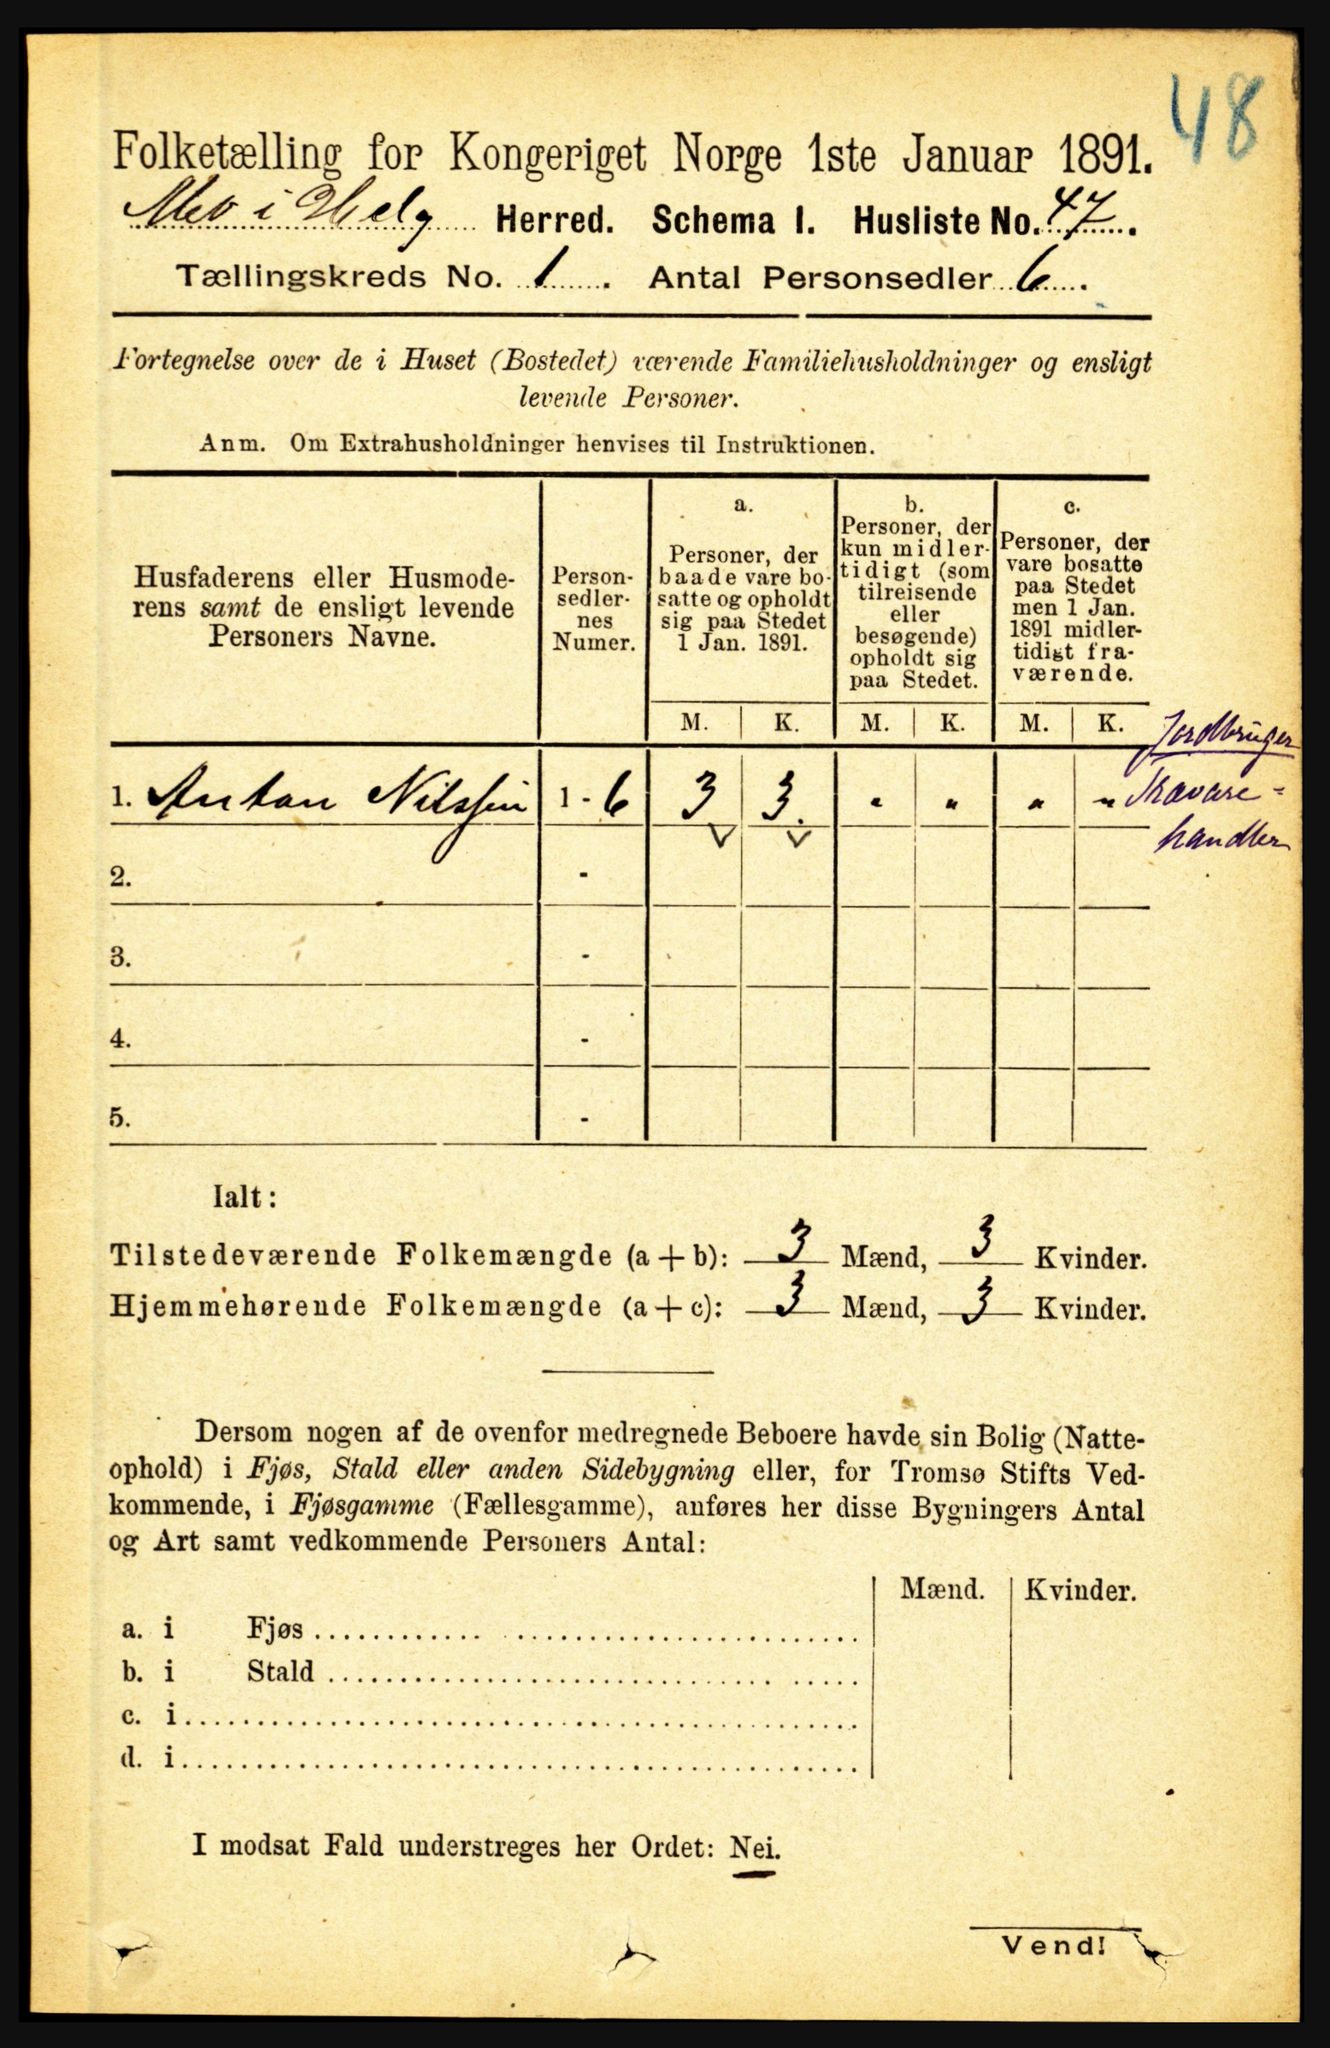 48
Folketælling for Kongeriget Norge 1ste Januar 1891.
Mo i Helg Herred. Schema I. Husliste No. 47.
Tællingskreds No. 1. Antal Personsedler 6.
Fortegnelse over de i Huset (Bostedet) værende Familiehusholdninger og ensligt
levende Personer.
Anm. Om Extrahusholdninger henvises til Instruktionen.
Husfaderens eller Husmode-
rens samt de ensligt levende
Personers Navne.
Person-
sedler-
nes
Numer.
a.
Personer, der
baade vare bo-
satte og opholdt
sig paa Stedet
1 Jan. 1891.
b.
Personer, der
kun midler-
tidigt (som
tilreisende
eller
besøgende)
opholdt sig
paa Stedet.
c.
Personer, der
vare bosatte
paa Stedet
men 1 Jan.
1891 midler-
tidigt fra-
værende.
M. K. M. K. M. K.
Jordbruger
1. Anton Nilssen 1 - 6 3 3. " " " " Kravare=
handler
2. -
3. -
4. -
5. -
Ialt:
Tilstedeværende Folkemængde (a + b): 3 Mænd, 3 Kvinder.
Hjemmehørende Folkemængde (a + c): 3 Mænd, 3 Kvinder.
Dersom nogen af de ovenfor medregnede Beboere havde sin Bolig (Natte-
ophold) i Fjøs, Stald eller anden Sidebygning eller, for Tromsø Stifts Ved-
kommende, i Fjøsgamme (Fællesgamme), anføres her disse Bygningers Antal
og Art samt vedkommende Personers Antal:
Mænd. Kvinder.
a. i Fjøs
b. i Stald
c. i
d. i
I modsat Fald understreges her Ordet: Nei.
Vend!